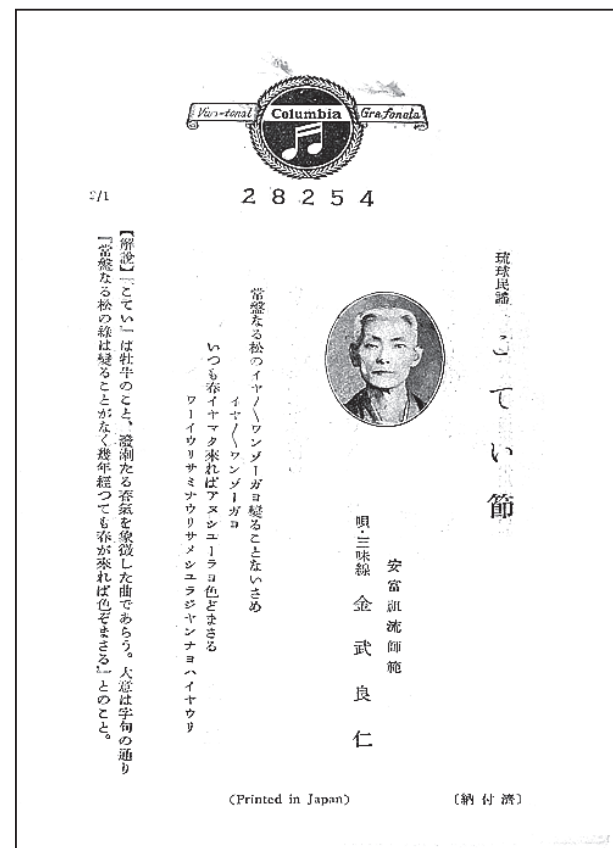 Viva-tonal Columbia Grafonola
28254
2/1
琉球民謡 こてい節
安富祖流師範
唄・三味線 金武良仁
常盤なる松のイヤ〳〵ワンゾーガヨ變ることないさめ
イヤ〳〵ワンゾーガヨ
いつも春イヤマタ來ればアヌシユーラヨ色どまさる
ワーイウリサミナウリサメシユラジヤンナヨハイヤウリ
【解説】「こてい」は牡牛のこと、潑溂たる春氣を象徴した曲であらう。大意は字句の通り
『常盤なる松の綠は變ることがなく幾年經つても春が來れば色ぞまさる』とのこと。
(Printed in Japan)
〔納付濟〕